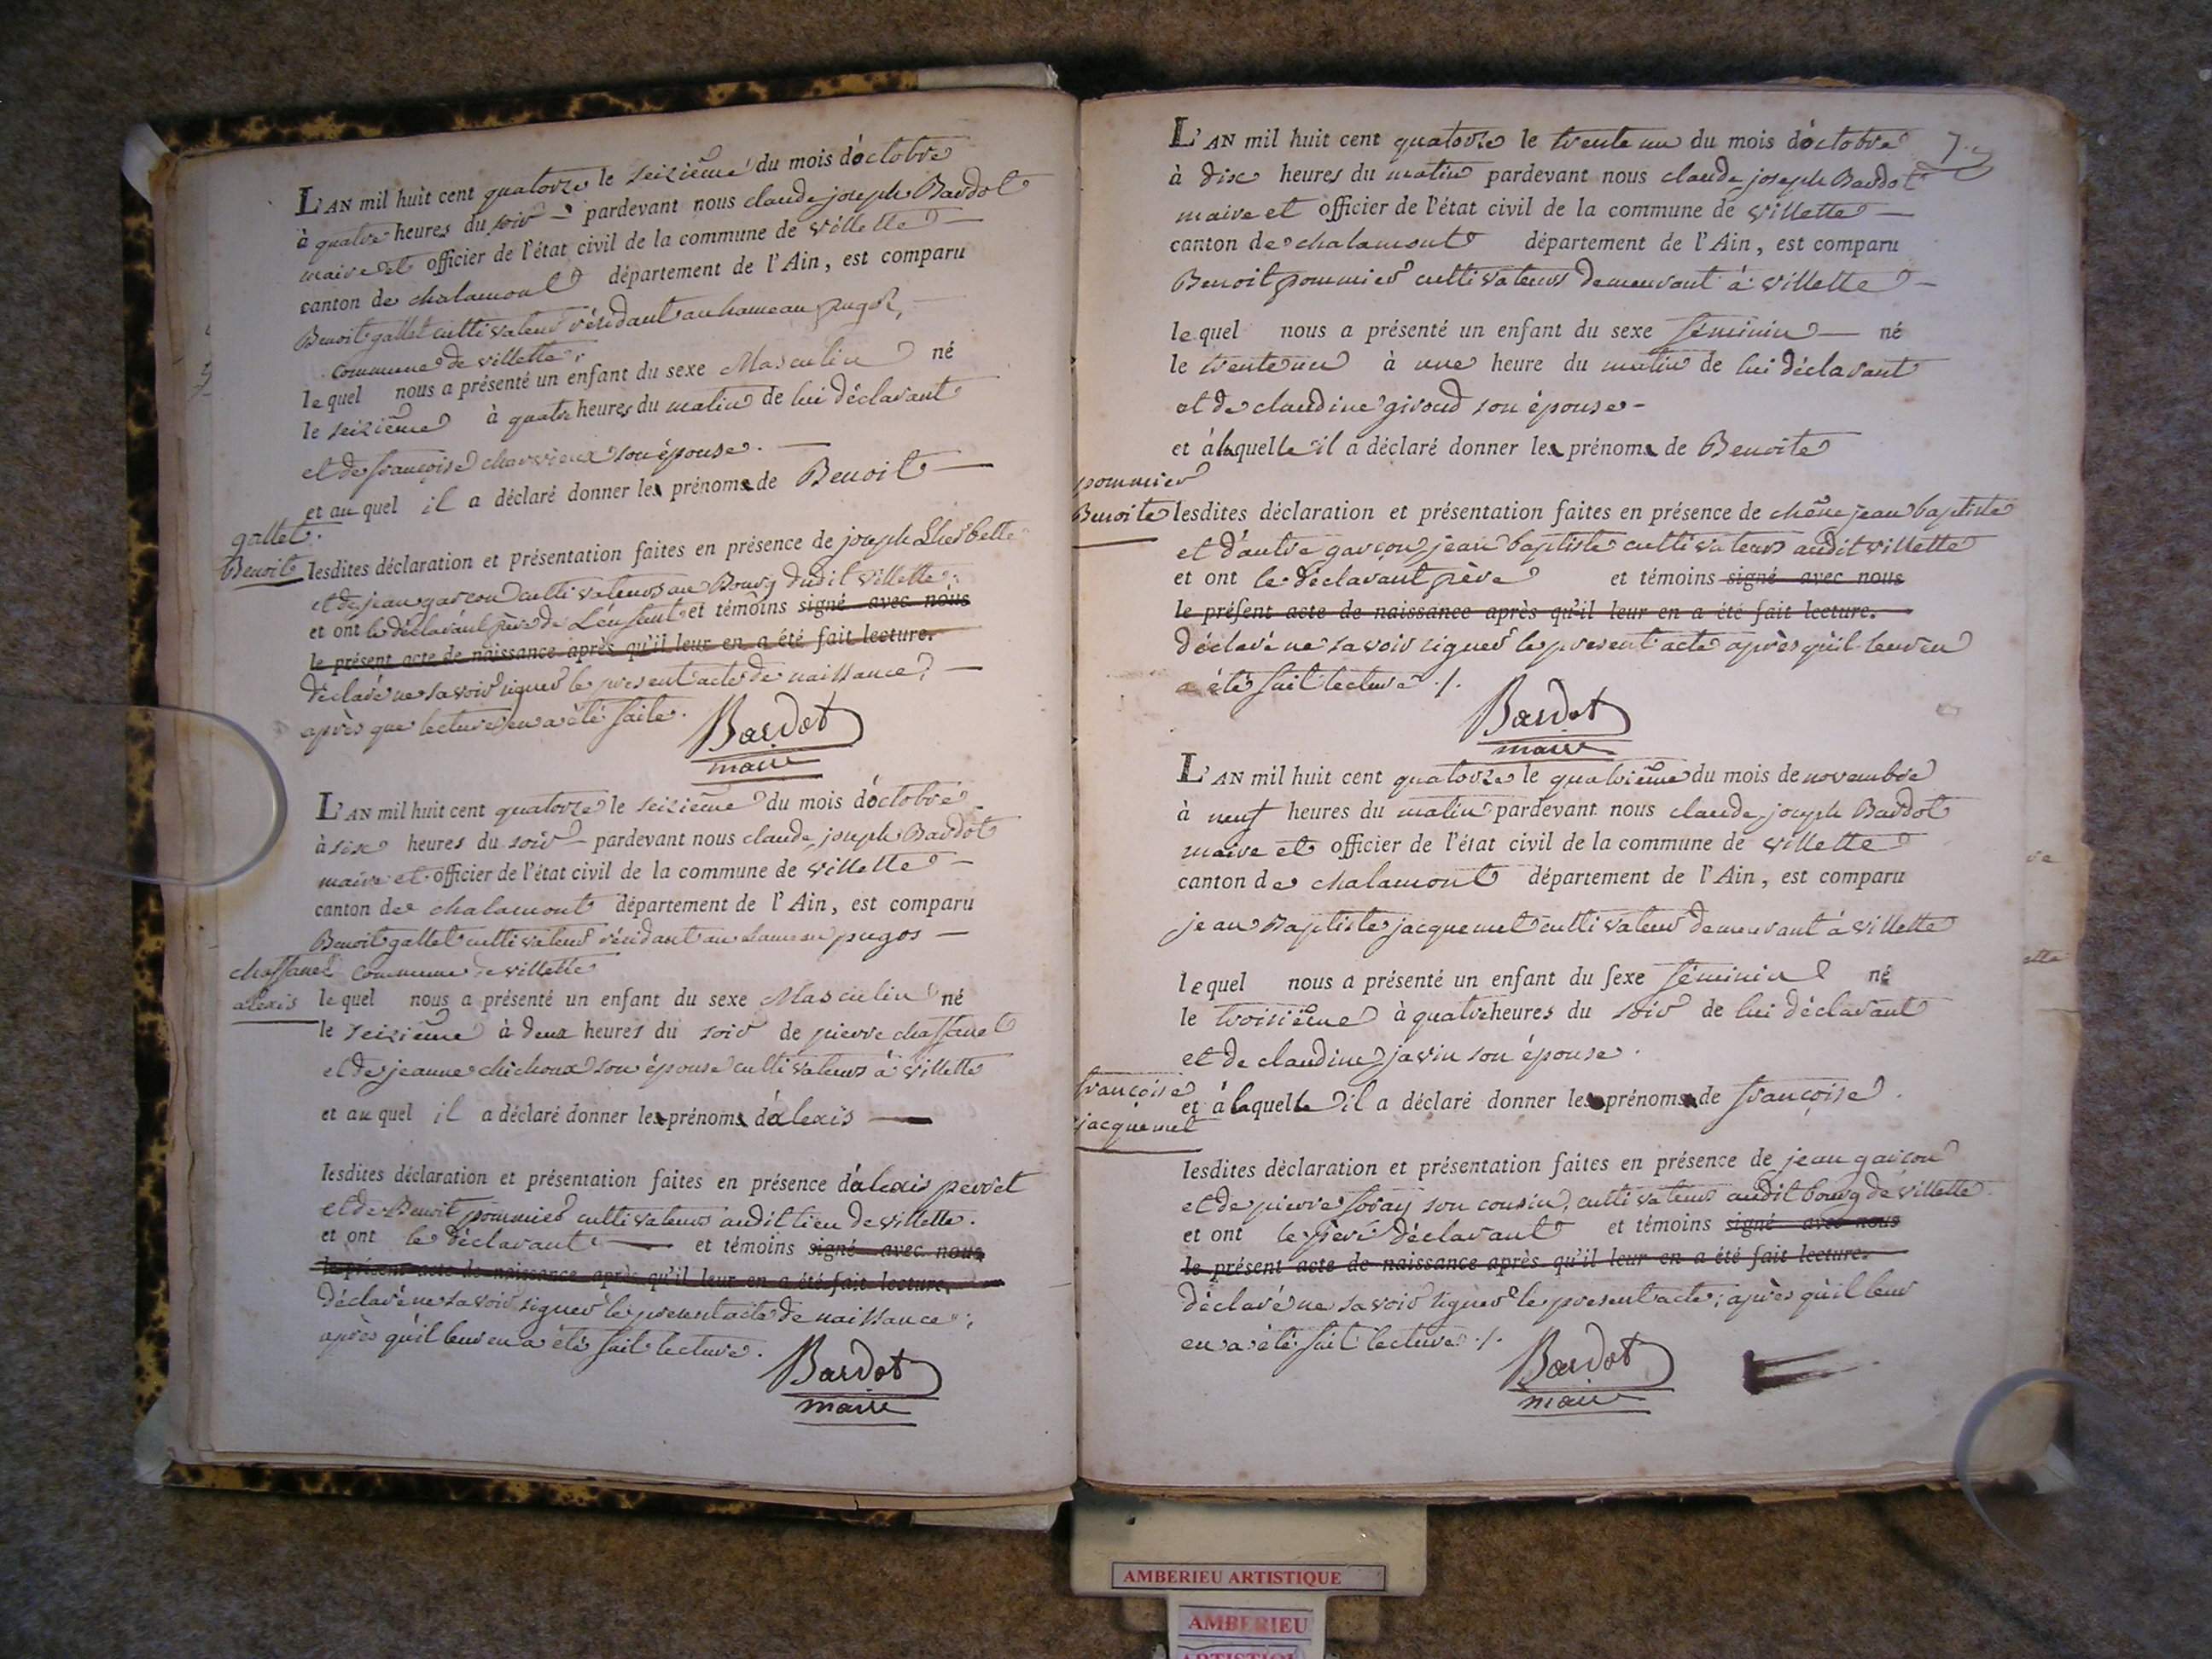 L'AN mil huit cent quatorze le seizième du mois d'octobre
à quatre heures du soir pardevant nous claude joseph Bardot
maire et officier de l'état civil de la commune de villette
canton de chalamont département de l'Ain, est comparu
Benoit gallet cultivateur résidant au hameau
commune de villette,
lequel nous a présenté un enfant du sexe Masculin né
le seizième à quatre heures du matin de lui déclarant
et de françoise charvieux son épouse.
et au quel il a déclaré donner les prénoms de Benoit
gallet.
Benoit
lesdites déclaration et présentation faites en présence de joseph Lherbette
et de jean garcon cultivateurs au Bourg dudit villette;
et ont le déclarant père de L'enfant et témoins signé avec nous
le présent acte de naissance après qu'il leur en a été fait lecture.
déclaré ne savoir signer le present acte de naissance,
après que lecture en a été faite.
Bardot
maire
L'AN mil huit cent quatorze le seizième du mois d'octobre
à six heures du soir pardevant nous claude joseph Bardot
maire et officier de l'état civil de la commune de villette
canton de chalamont département de l'Ain, est comparu
Benoit gallet cultivateur résidant au hameau pugos
chassanel
alexis
commune de villette
lequel nous a présenté un enfant du sexe Masculin né
le seizième à deux heures du soir de pierre chassanel
et de jeanne chichoux son épouse cultivateurs à villette
et au quel il a déclaré donner les prénoms d'alexis
lesdites déclaration et présentation faites en présence d'alexis perret
et de Benoit pommier cultivateurs audit lieu de villette.
et ont le déclarant et témoins signé avec nous
le présent acte de naissance après qu'il leur en a été fait lecture.
déclaré ne savoir signer le present acte de naissance;
après qu'il leur en a été fait lecture.
Bardot
maire
7.
L'AN mil huit cent quatorze le trente un du mois d'octobre
à dix heures du matin pardevant nous claude joseph Bardot
maire et officier de l'état civil de la commune de villette
canton de chalamont département de l'Ain, est comparu
Benoit pommier cultivateur demeurant à villette
lequel nous a présenté un enfant du sexe féminin né
le trente un à une heure du matin de lui déclarant
et de claudine giroud son épouse
et à laquelle il a déclaré donner les prénoms de Benoite
pommier
Benoite
lesdites déclaration et présentation faites en présence de chêne jean baptiste
et d'autre garçon jean baptiste cultivateurs audit villette
et ont le déclarant père et témoins signé avec nous
le présent acte de naissance après qu'il leur en a été fait lecture.
déclaré ne savoir signer le present acte après qu'il leur en
a été fait lecture ./.
Bardot
maire
L'AN mil huit cent quatorze le quatrième du mois de novembre
à neuf heures du matin pardevant nous claude joseph Bardot
maire et officier de l'état civil de la commune de villette
canton de chalamont département de l'Ain, est comparu
jean Baptiste jacquemet cultivateur demeurant à villette
lequel nous a présenté un enfant du sexe féminin né
le troisième à quatre heures du soir de lui déclarant
et de claudine javin son épouse.
françoise
jacquemet
et à laquelle il a déclaré donner les prénoms de françoise.
lesdites déclaration et présentation faites en présence de jean garcon
et de pierre foray son cousin, cultivateurs audit bourg de villette
et ont le père déclarant et témoins signé avec nous
le présent acte de naissance après qu'il leur en a été fait lecture.
déclaré ne savoir signer le present acte; après qu'il leur
en a été fait lecture ./.
Bardot
maire
AMBERIEU ARTISTIQUE
AMBERIEU
ARTISTIQUE